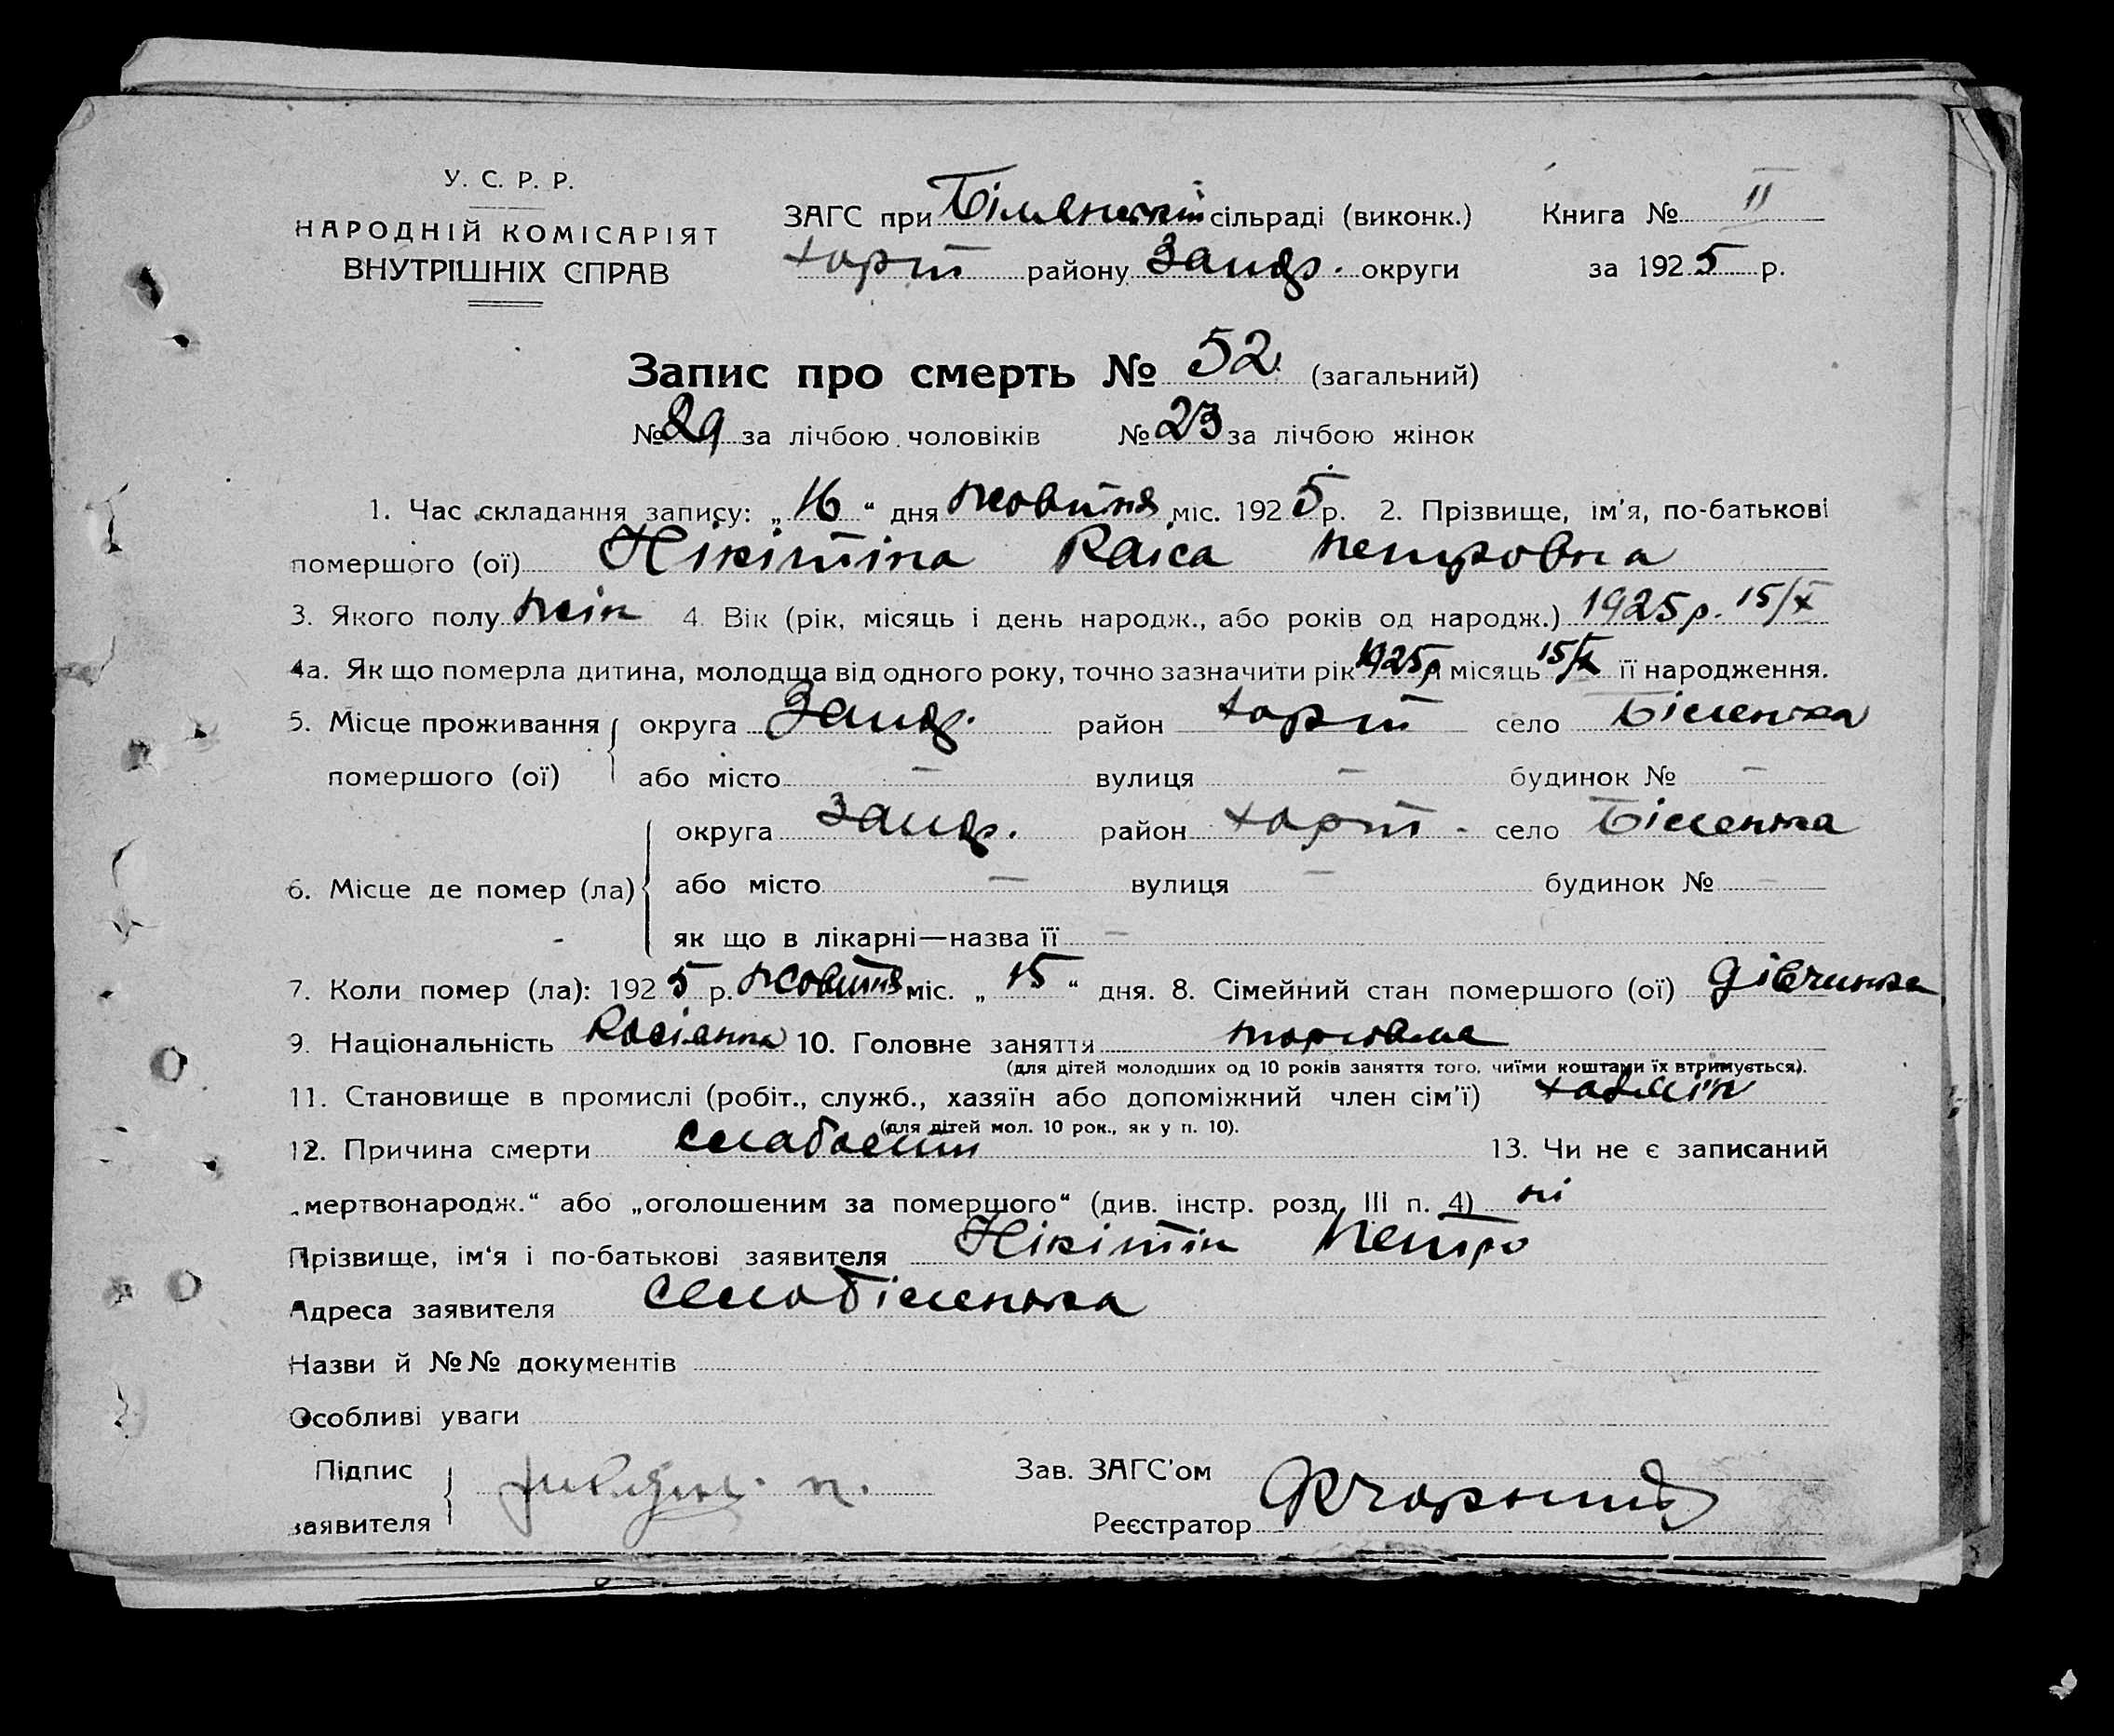 У. С. Р. Р.
НАРОДНІЙ КОМІСАРІЯТ
ВНУТРІШНІХ СПРАВ
ЗАГС при Біленській сільраді (виконк.) Книга № II
Хорт району Запор. округи за 1925 р.
Запис про смерть № 52 (загальний)
№ 29 за лічбою чоловіків № 23 за лічбою жінок
1. Час складання запису: „16“ дня жовтня міс. 1925 р. 2. Прізвище, ім'я, по-батькові
помершого (ої) Нікітіна Раіса Петровна
3. Якого полу жін 4. Вік (рік, місяць і день народж., або років од народж.) 1925 р. 15/X
4а. Як що померла дитина, молодща від одного року, точно зазначити рік 1925 р місяць 15/X її народження.
5. Місце проживання округа Запор. район Хорт село Біленька
помершого (ої) або місто — вулиця — будинок № —
округа Запор. район Хорт. село Біленька
6. Місце де помер (ла) або місто — вулиця — будинок № —
як що в лікарні—назва її —
7. Коли помер (ла): 1925 р. жовтня міс. „15“ дня. 8. Сімейний стан помершого (ої) дівчинка
9. Національність Росіянка 10. Головне заняття торговля
(для дітей молодших од 10 років заняття того, чиїми коштами їх втримується).
11. Становище в промислі (робіт., служб., хазяїн або допоміжний член сім'ї) хазяїн
(для дітей мол. 10 рок., як у п. 10).
12. Причина смерти слабость 13. Чи не є записаний
„мертвонародж.“ або „оголошеним за помершого“ (див. інстр. розд. III п. 4) ні
Прізвище, ім'я і по-батькові заявителя Нікітін Петро
Адреса заявителя село Біленька
Назви й №№ документів
Особливі уваги
Підпис Зав. ЗАГС'ом
заявителя Реєстратор